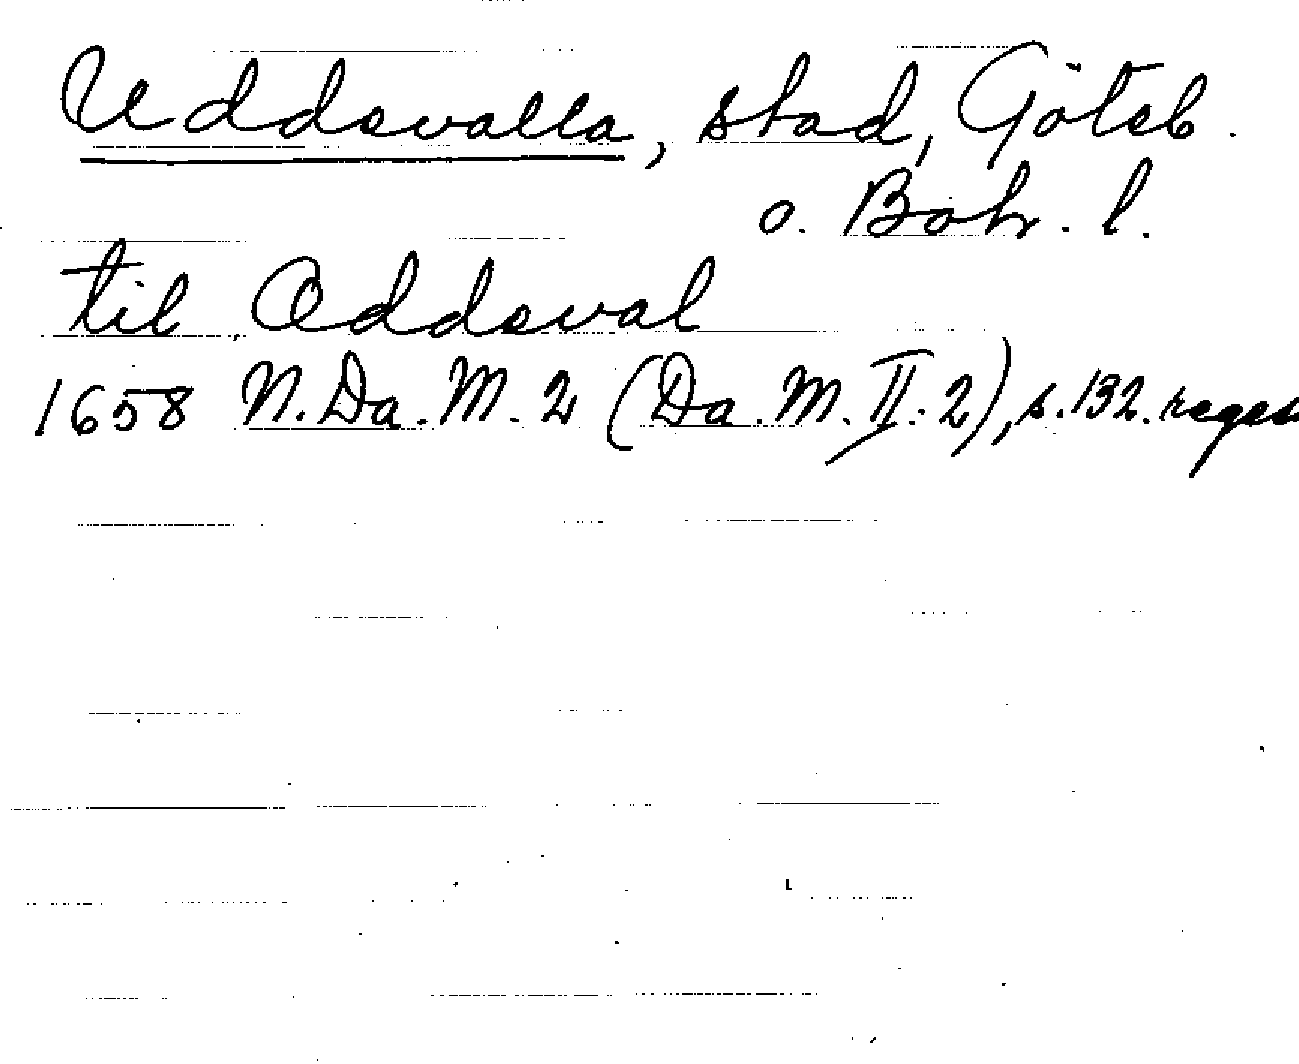 Uddevalla, stad, Göteb.
o. Boh. l.
til Oddeval
1658 N. Da. M. 2 (Da. M. II. 2), s. 132. reges